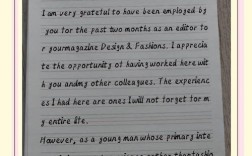 I am very grateful to have been employed by
you for the past two months as an editor to
r yourmagazine Design & Fashions. I apprecia
te the opportunity of having worked here wit
h you andmy other colleagues. The experienc
es I had here are ones I will not forget for m
y entire life.
However, as a young man whose primary inte